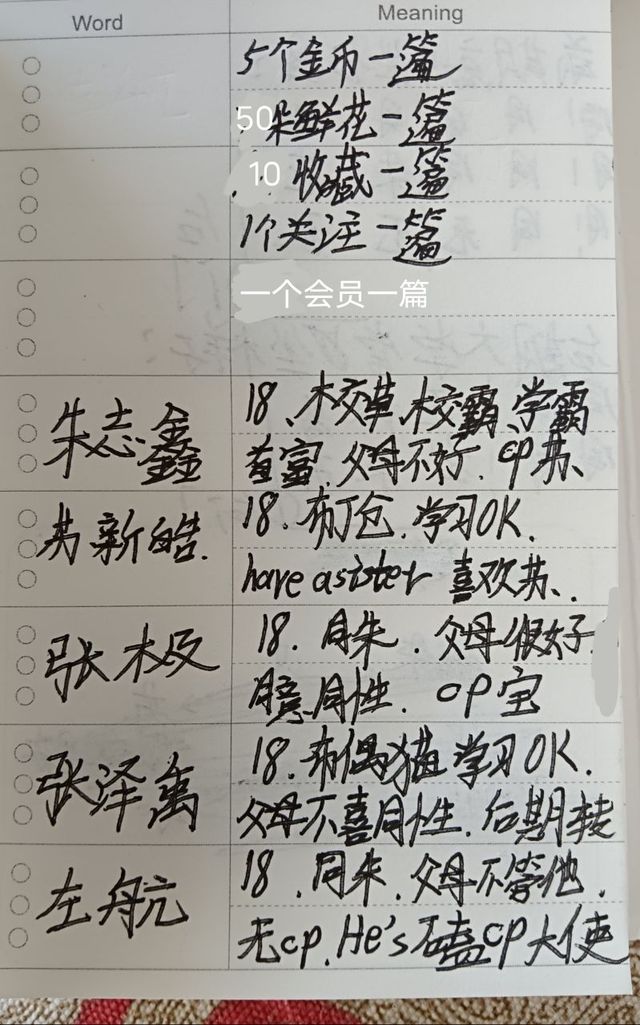 Word Meaning
5个金币一篇
50朵鲜花一篇
10收藏一篇
1个关注一篇
一个会员一篇
朱志鑫 18、校草、校霸、学霸
首富、父母不好.cp苏、
苏新皓. 18.布丁仓.学习OK.
have a sister 喜欢苏、.
张极 18.同朱.父母很好
同性.cp宝
张泽禹 18.布偶猫 学习OK.
父母不喜同性.后期转
左航 18.同朱.父母不管他.
无cp.He's 磕cp大使